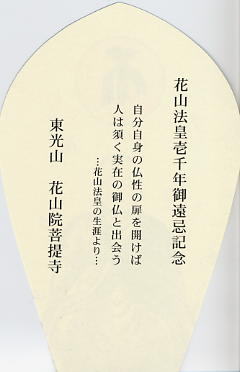 花山法皇壱千年御遠忌記念
自分自身の仏性の扉を開けば
人は須く実在の御仏と出会う
…花山法皇の生涯より…
東光山　花山院菩提寺